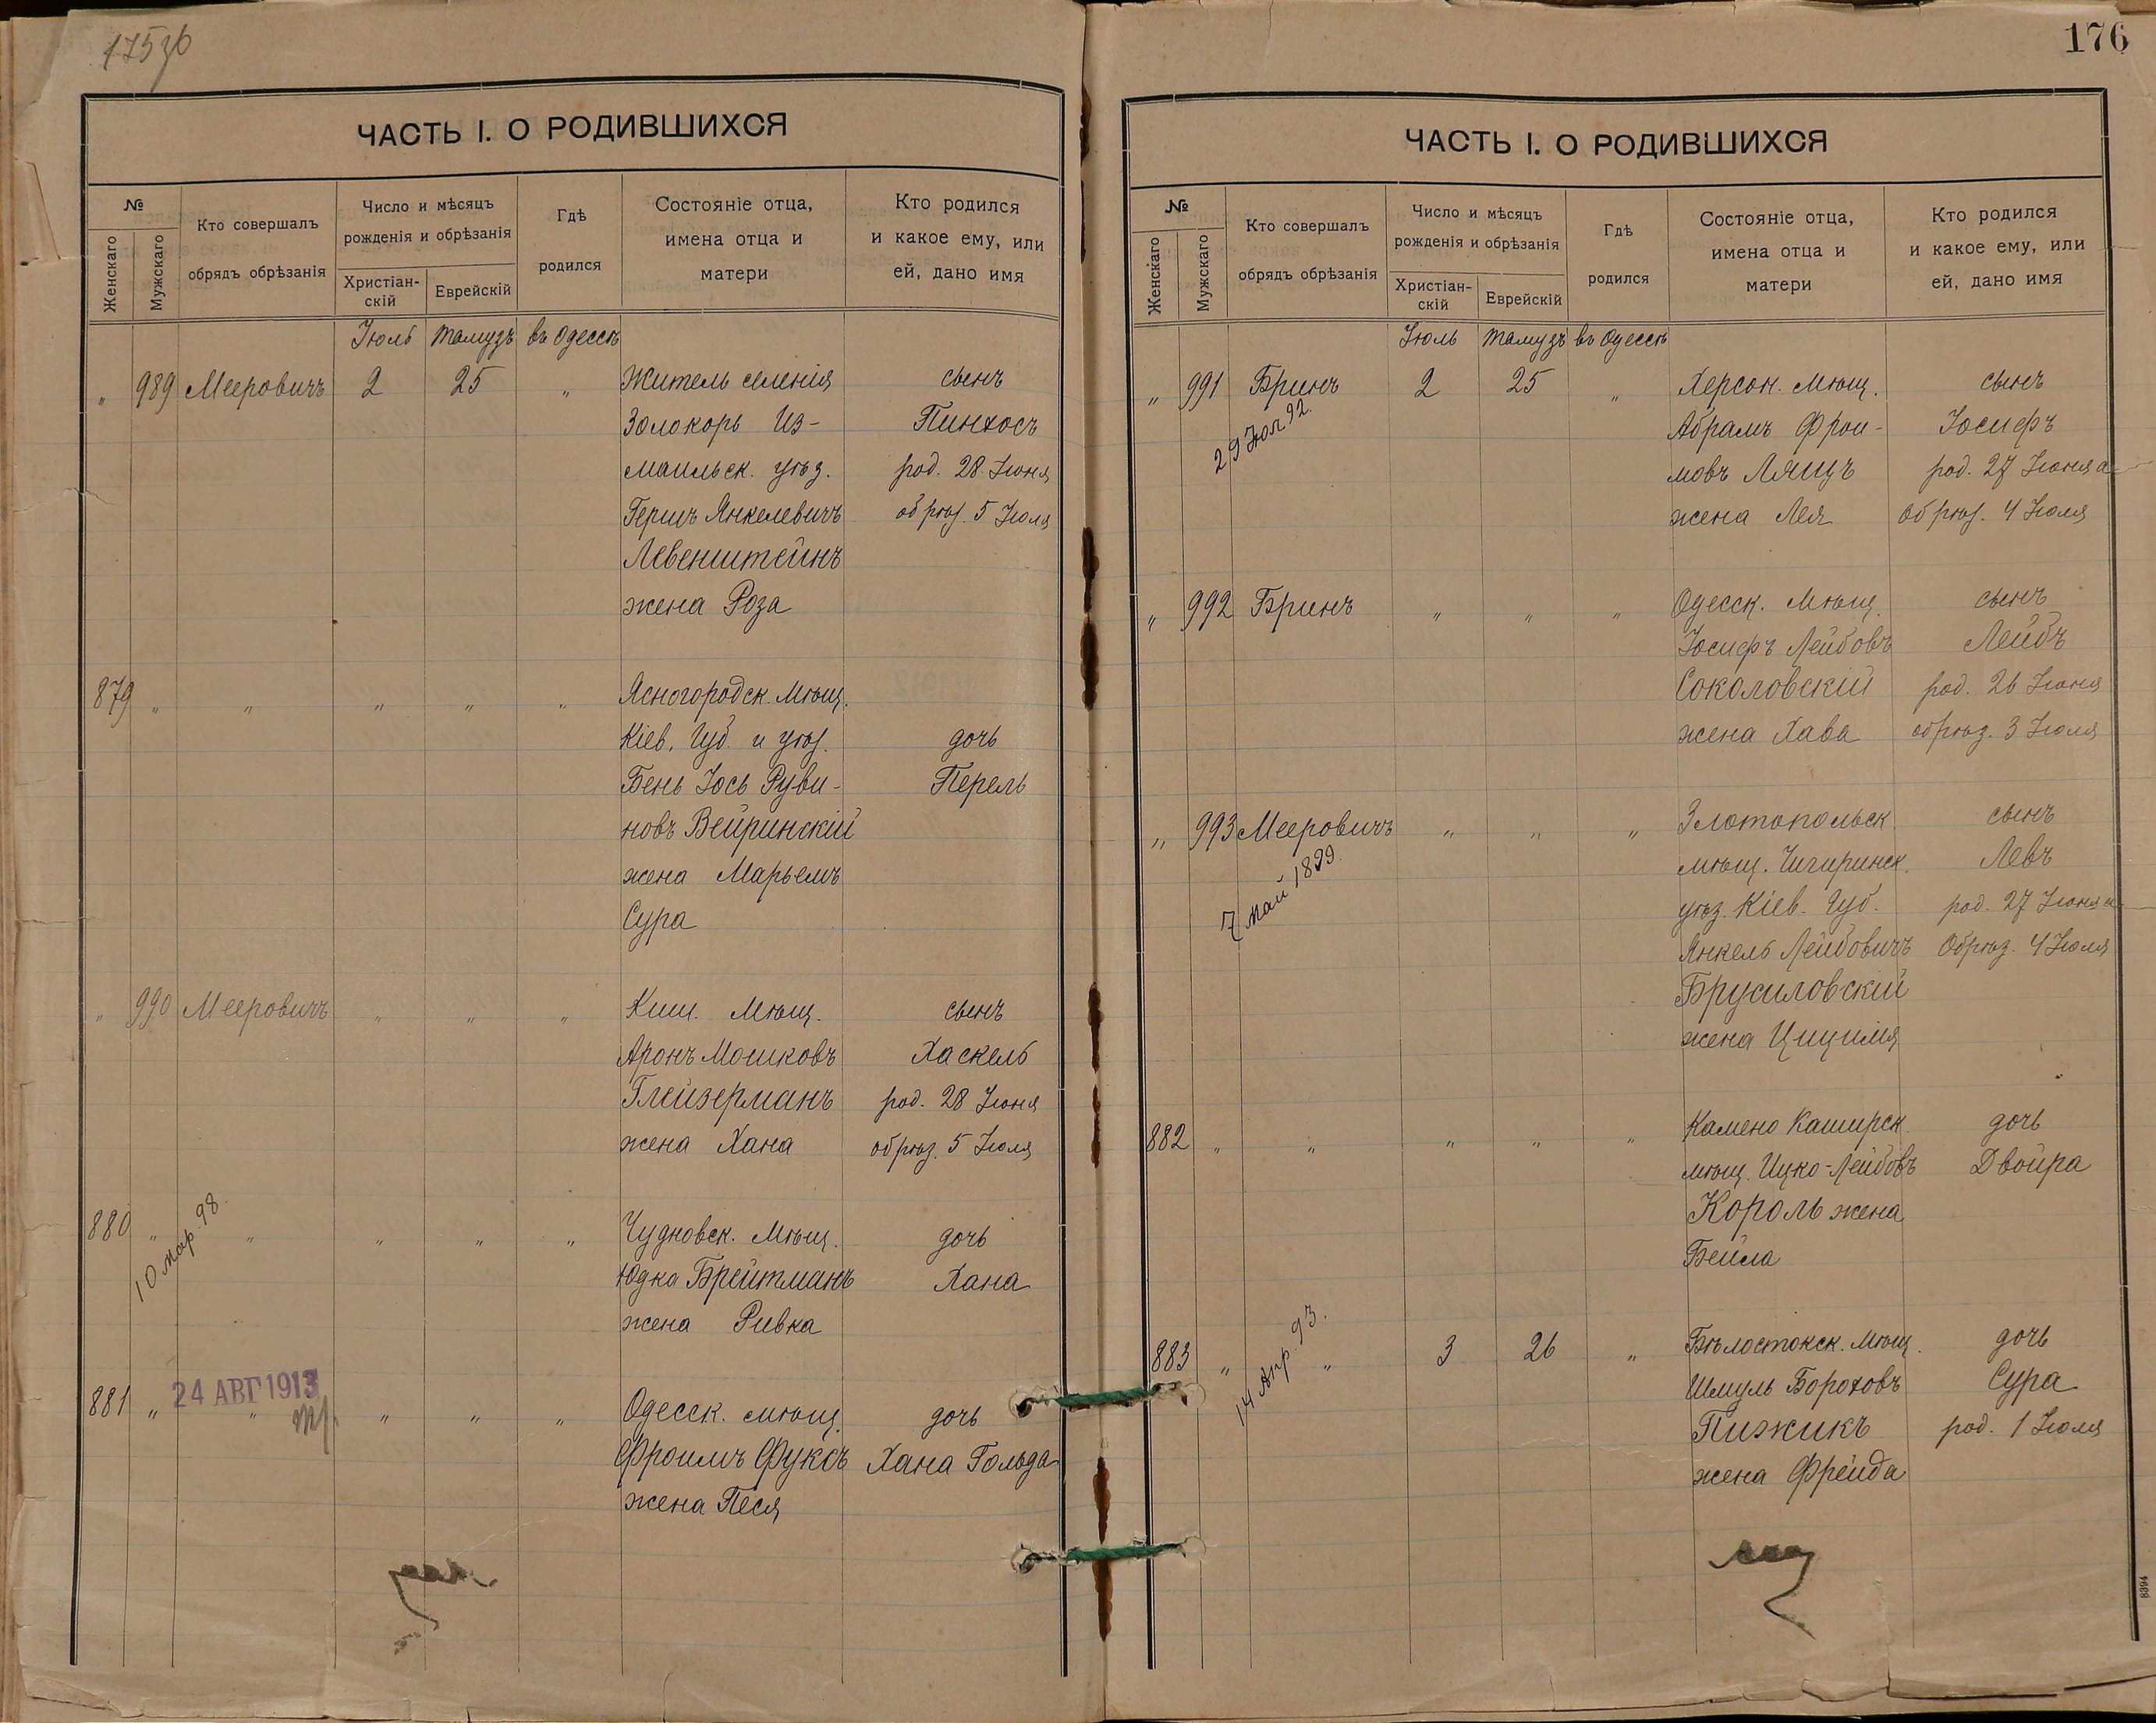 176
ЧАСТЬ I. О РОДИВШИХСЯ
№
Женскаго
Мужскаго
Кто совершалъ
обрядъ обрѣзанія
Число и мѣсяцъ
рожденія и обрѣзанія
Христіан-
скій
Еврейскій
Гдѣ
родился
Состояніе отца,
имена отца и
матери
Кто родился
и какое ему, или
ей, дано имя
Іюль Тамузъ въ Одессѣ
„ 989 Мееровичъ 2 25 „ Житель селенія сынъ
Золокорь Из- Пинхосъ
маильск. уѣз. род. 28 Іюня
Гершъ Янкелевичъ обрѣз. 5 Іюля
Левенштейнъ
жена Роза
879 „ „ „ „ „ Ясногородск. Мѣщ.
Кіев. Губ. и уѣз. дочь
Бень Іось Руви- Перель
новъ Вейринскій
жена Марьемъ
Сура
„ 990 Мееровичъ „ „ „ Киш. Мѣщ. сынъ
Аронъ Мошковъ Хаскель
Глейзерманъ род. 28 Іюня
жена Хана обрѣз. 5 Іюля
880 „ „ „ „ „ Чудновск. Мѣщ. дочь
10 мар. 98.
Юдка Брейтманъ Хана
жена Ривка
24 АВГ 1913
881 „ „ „ „ „ Одесск. мѣщ. дочь
Фроимъ Фуксъ Хана Гольда
жена Песя
ЧАСТЬ I. О РОДИВШИХСЯ
№
Женскаго
Мужскаго
Кто совершалъ
обрядъ обрѣзанія
Число и мѣсяцъ
рожденія и обрѣзанія
Христіан-
скій
Еврейскій
Гдѣ
родился
Состояніе отца,
имена отца и
матери
Кто родился
и какое ему, или
ей, дано имя
Іюль Тамузъ въ Одессѣ
„ 991 Бринъ 2 25 „ Херсон. мѣщ. сынъ
29 Іюл 92.
Абрамъ Фрои- Іосифъ
мовъ Лящъ род. 27 Іюня а
жена Лея обрѣз. 4 Іюля
„ 992 Бринъ „ „ „ Одесск. мѣщ. сынъ
Іосифъ Лейбовъ Лейбъ
Соколовскій род. 26 Іюня
жена Хава обрѣз. 3 Іюля
„ 993 Мееровичъ „ „ „ Златопольск. сынъ
7 май 1899.
мѣщ. Чигиринск. Левъ
уѣз. Кіев. Губ. род. 27 Іюня а
Янкель Лейбовичъ Обрѣз. 4 Іюля
Брусиловскій
жена Цицилія
882 „ „ „ „ „ Камено Каширск. дочь
мѣщ. Ицко-Лейбовъ Двойра
Король жена
Бейла
883 „ „ 3 26 „ Бѣлостокск. мѣщ. дочь
14 Апр. 93.
Шмуль Бороховъ Сура
Пижикъ род. 1 Іюля
жена Фрейда
8394